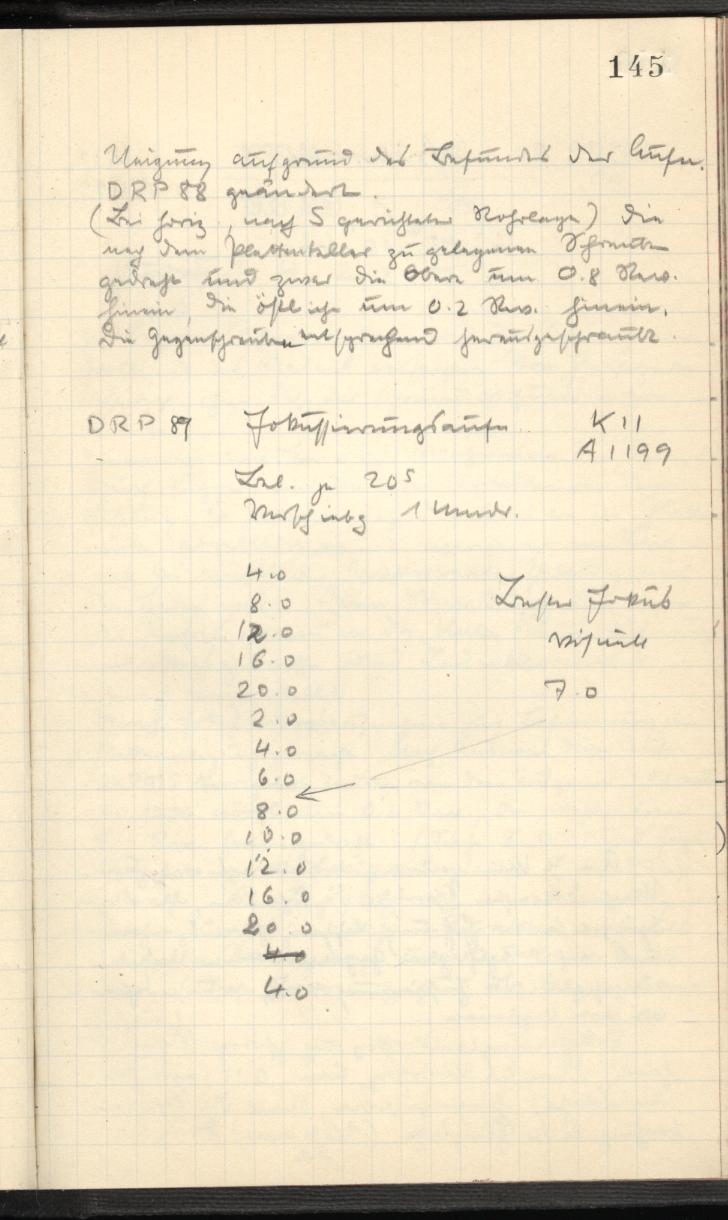 145
Neigung aufgrund des Befundes der Aufn.
DRP 88 geändert.
(Bei horiz., nach S gerichteter Rohrlage) die
nach dem Plattenteller zu gelegenen Schrauben
gedreht und zwar die Obere um 0.8 Rev.
hinein, die östliche um 0.2 Rev. hinein.
Die Gegenschrauben entsprechend herausgeschraubt.
DRP 89 Fokussierungsaufn. K 11
A 1199
Bel. je 20s
Verschiebg 1 Umdr.
4.0
8.0
12.0
16.0
20.0
2.0
4.0
6.0
8.0
10.0
12.0
16.0
20.0
4.0
4.0
Bester Fokus
visuell
7.0